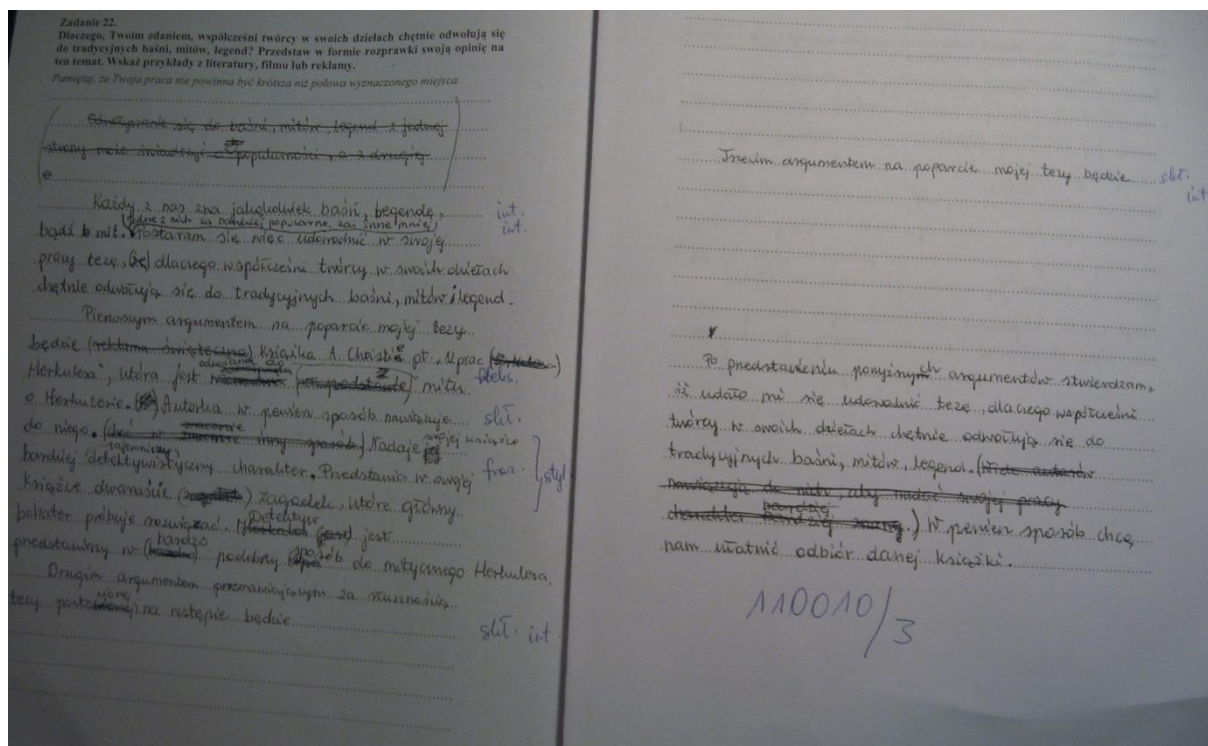 Zadanie 22.
Dlaczego, Twoim zdaniem, współcześni twórcy w swoich dziełach chętnie odwołują się
do tradycyjnych baśni, mitów, legend? Przedstaw w formie rozprawki swoją opinię na
ten temat. Wskaż przykłady z literatury, filmu lub reklamy.
Pamiętaj, że Twoja praca nie powinna być krótsza niż połowa wyznaczonego miejsca.
(Odwoływanie się do baśni, mitów, legend z jednej
strony może świadczyć o popularności, a z drugiej
Każdy z nas zna jakąkolwiek baśń, legendę, int.
jedne z nich są bardziej popularne, zaś inne mniej int.
bądź mit. Postaram się więc udowodnić w swojej
pracy tezę, (że) dlaczego współcześni twórcy w swoich dziełach
chętnie odwołują się do tradycyjnych baśni, mitów i legend.
Pierwszym argumentem na poparcie mojej tezy
będzie (reklama świąteczna) książka A. Christie pt. „12 prac
Herkulesa", która jest mitu fleks.
o Herkulesie. Autorka w pewien sposób nawiązuje skł.
do niego. Nadaje swojej książce
bardziej tajemniczy, detektywistyczny charakter. Przedstawia w swojej fraz. styl.
książce dwanaście zagadek, które główny
bohater próbuje rozwiązać. Detektyw jest
przedstawiony w (bardzo) bardzo podobny sposób do mitycznego Herkulesa.
Drugim argumentem przemawiającym za słusznością
tezy postawionej na wstępie będzie skł. int.
Trzecim argumentem na poparcie mojej tezy będzie skł.
int
Po przedstawieniu powyższych argumentów stwierdzam,
iż udało mi się udowodnić tezę, dlaczego współcześni
twórcy w swoich dziełach chętnie odwołują się do
tradycyjnych baśni, mitów, legend. (Wielu autorów
nawiązuje do nich, aby nadać swojej pracy
charakter bardziej) W pewien sposób chcą
nam ułatwić odbiór danej książki.
110010/3